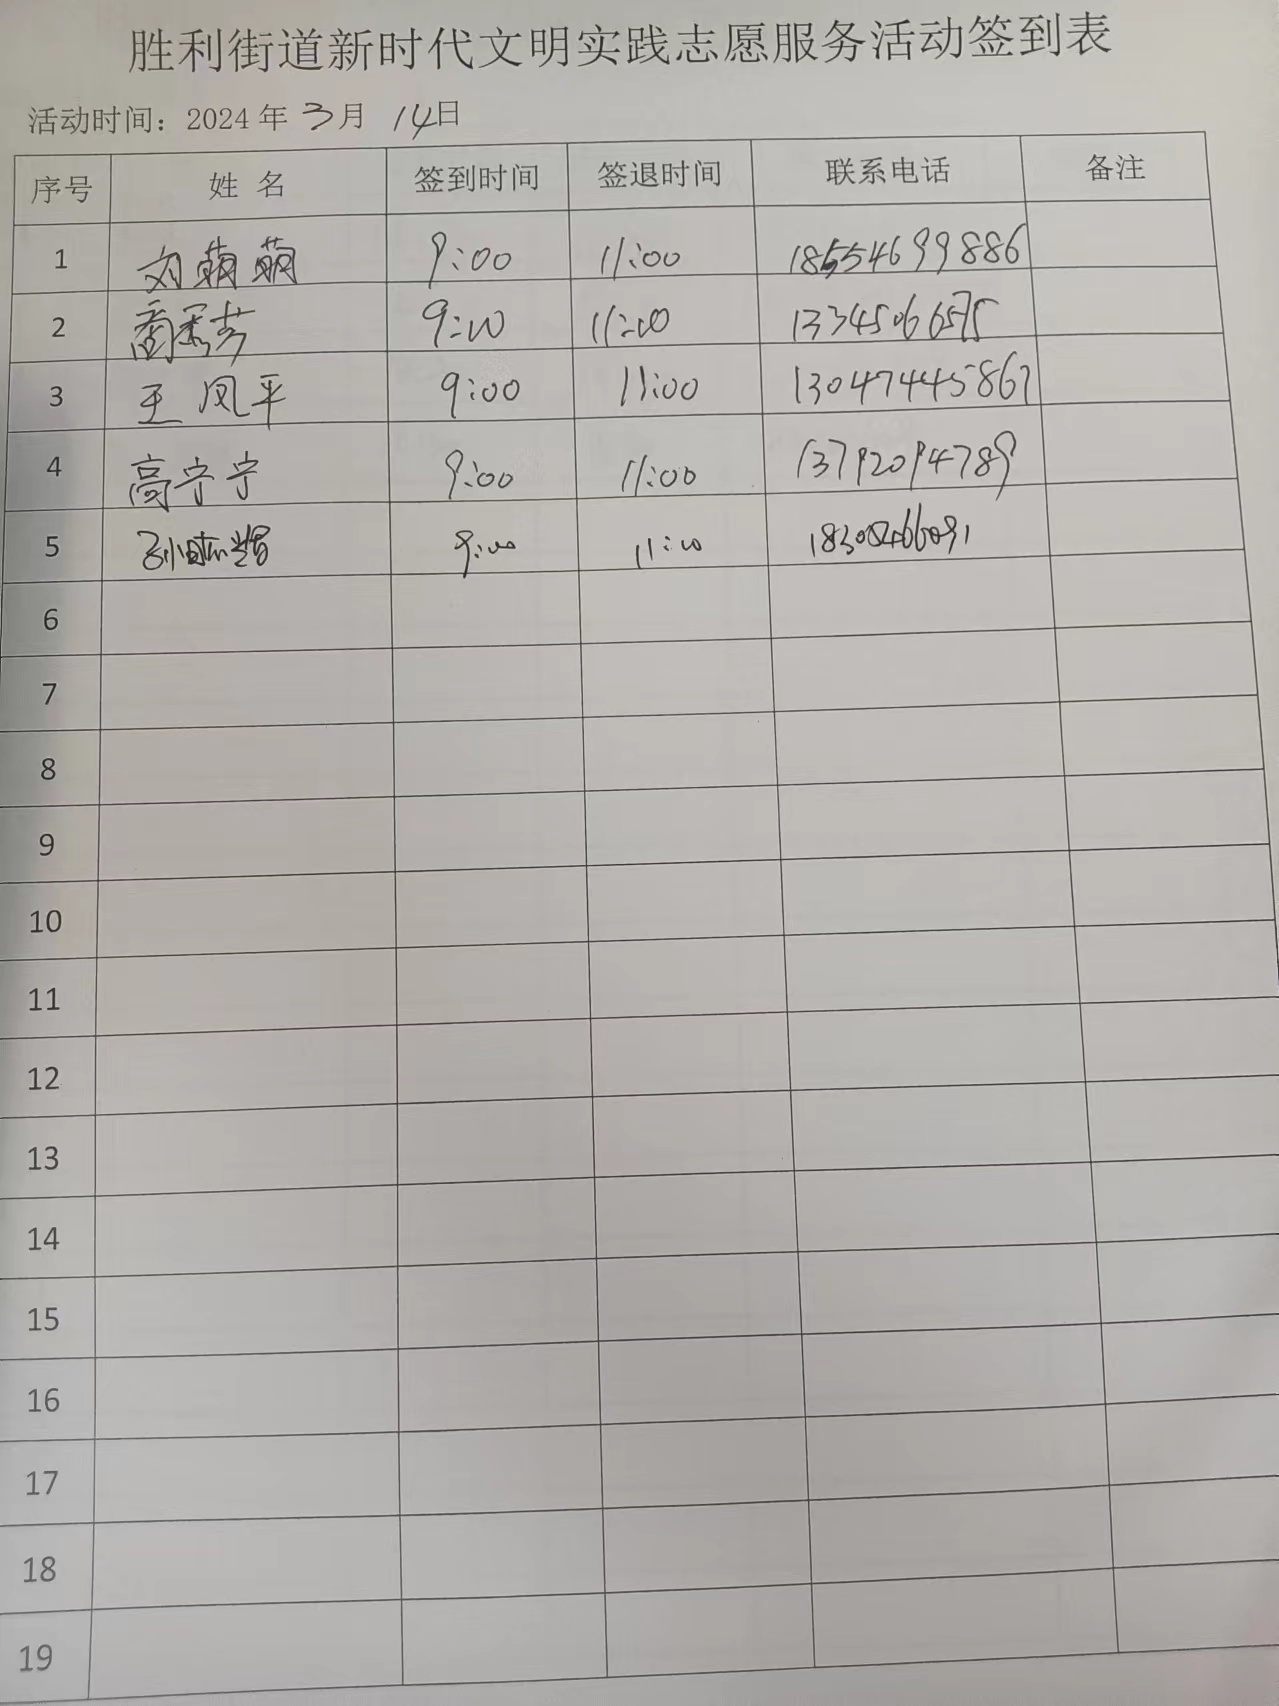 胜利街道新时代文明实践志愿服务活动签到表
活动时间：2024年 3月 14日
序号 姓名 签到时间 签退时间 联系电话 备注
1 刘萌萌 9:00 11:00 18654699886
2 9:00 11:00 13345066575
3 王凤平 9:00 11:00 13047445867
4 高宁宁 9:00 11:00 13792094789
5 9:00 11:00
6
7
8
9
10
11
12
13
14
15
16
17
18
19